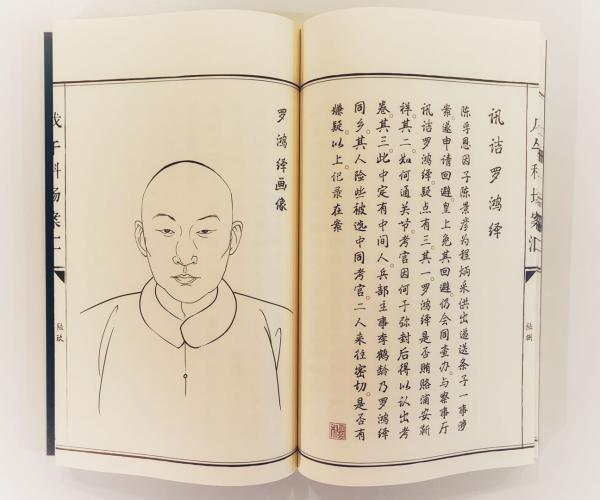 戊午科场案汇
陆捌
讯诘罗鸿绎
陈孚恩因子陈景彦为程炳采供出递送条子一事涉
案。遂申请回避。皇上免其回避。仍会同查办。与察事厅
讯诘罗鸿绎。疑点有三。其一。罗鸿绎是否贿赂浦安靳
祥。其二。如何通关节。考官因何于弥封后得以认出考
卷。其三。此中定有中间人。兵部主事李鹤龄乃罗鸿绎
同乡。其人险些被选中同考官。二人来往密切。是否有
嫌疑。以上记录在案
罗鸿绎画像
戊午科场案汇
陆玖